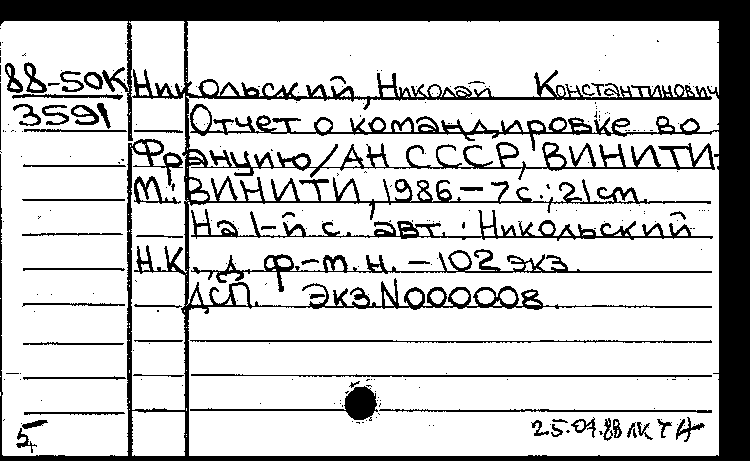 88-50К Никольский, Николай Константинович
3591 Отчет о командировке во
Францию/АН СССР, ВИНИТИ.-
М.: ВИНИТИ, 1986.-7с.; 21см.
На 1-й с. авт.: Никольский
Н.К., д. ф.-т. н. - 102 экз.
ДСП. Экз.N000008.
5
25.04.88